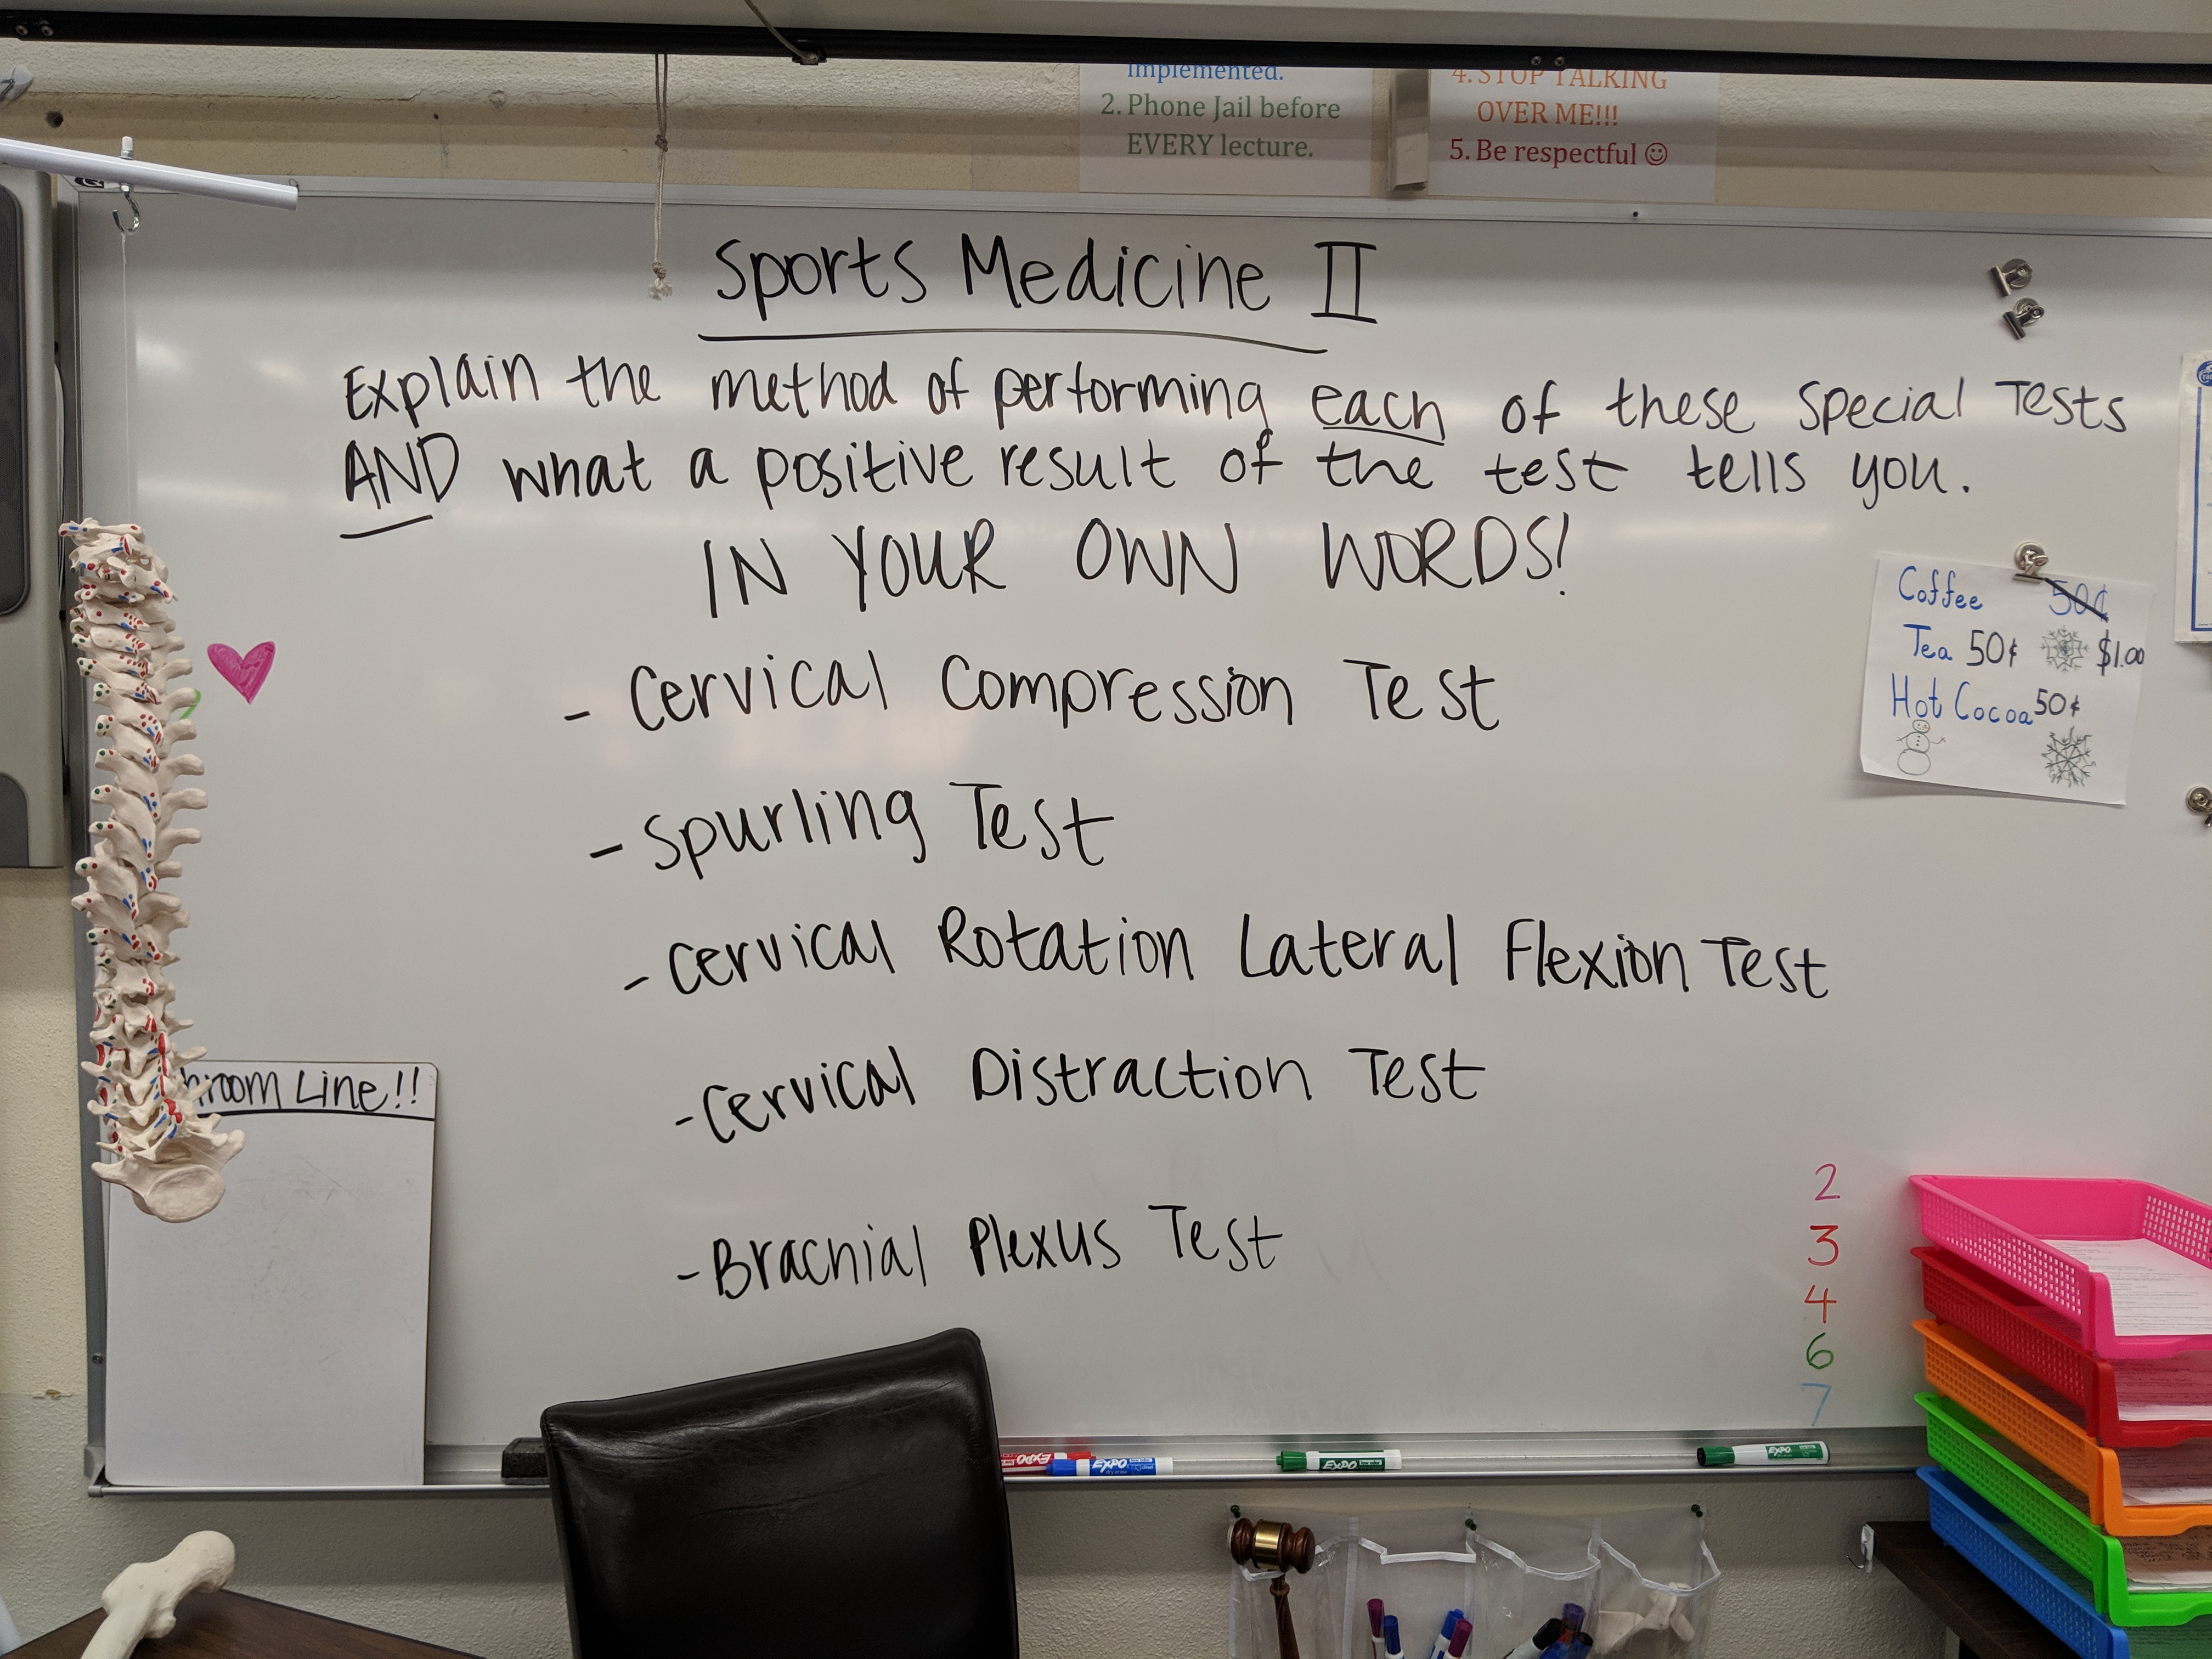 implemented.
2. Phone Jail before
EVERY lecture.
4. STOP TALKING
OVER ME!!!
5. Be respectful ☺
Sports Medicine II
Explain the method of performing each of these Special Tests
AND what a positive result of the test tells you.
IN YOUR OWN WORDS!
- Cervical Compression Test
- Spurling Test
- Cervical Rotation Lateral Flexion Test
- Cervical Distraction Test
- Brachial Plexus Test
Coffee 50¢
Tea 50¢ $1.00
Hot Cocoa 50¢
Line!!
2
3
4
6
7
EXPO
EXPO
EXPO
EXPO